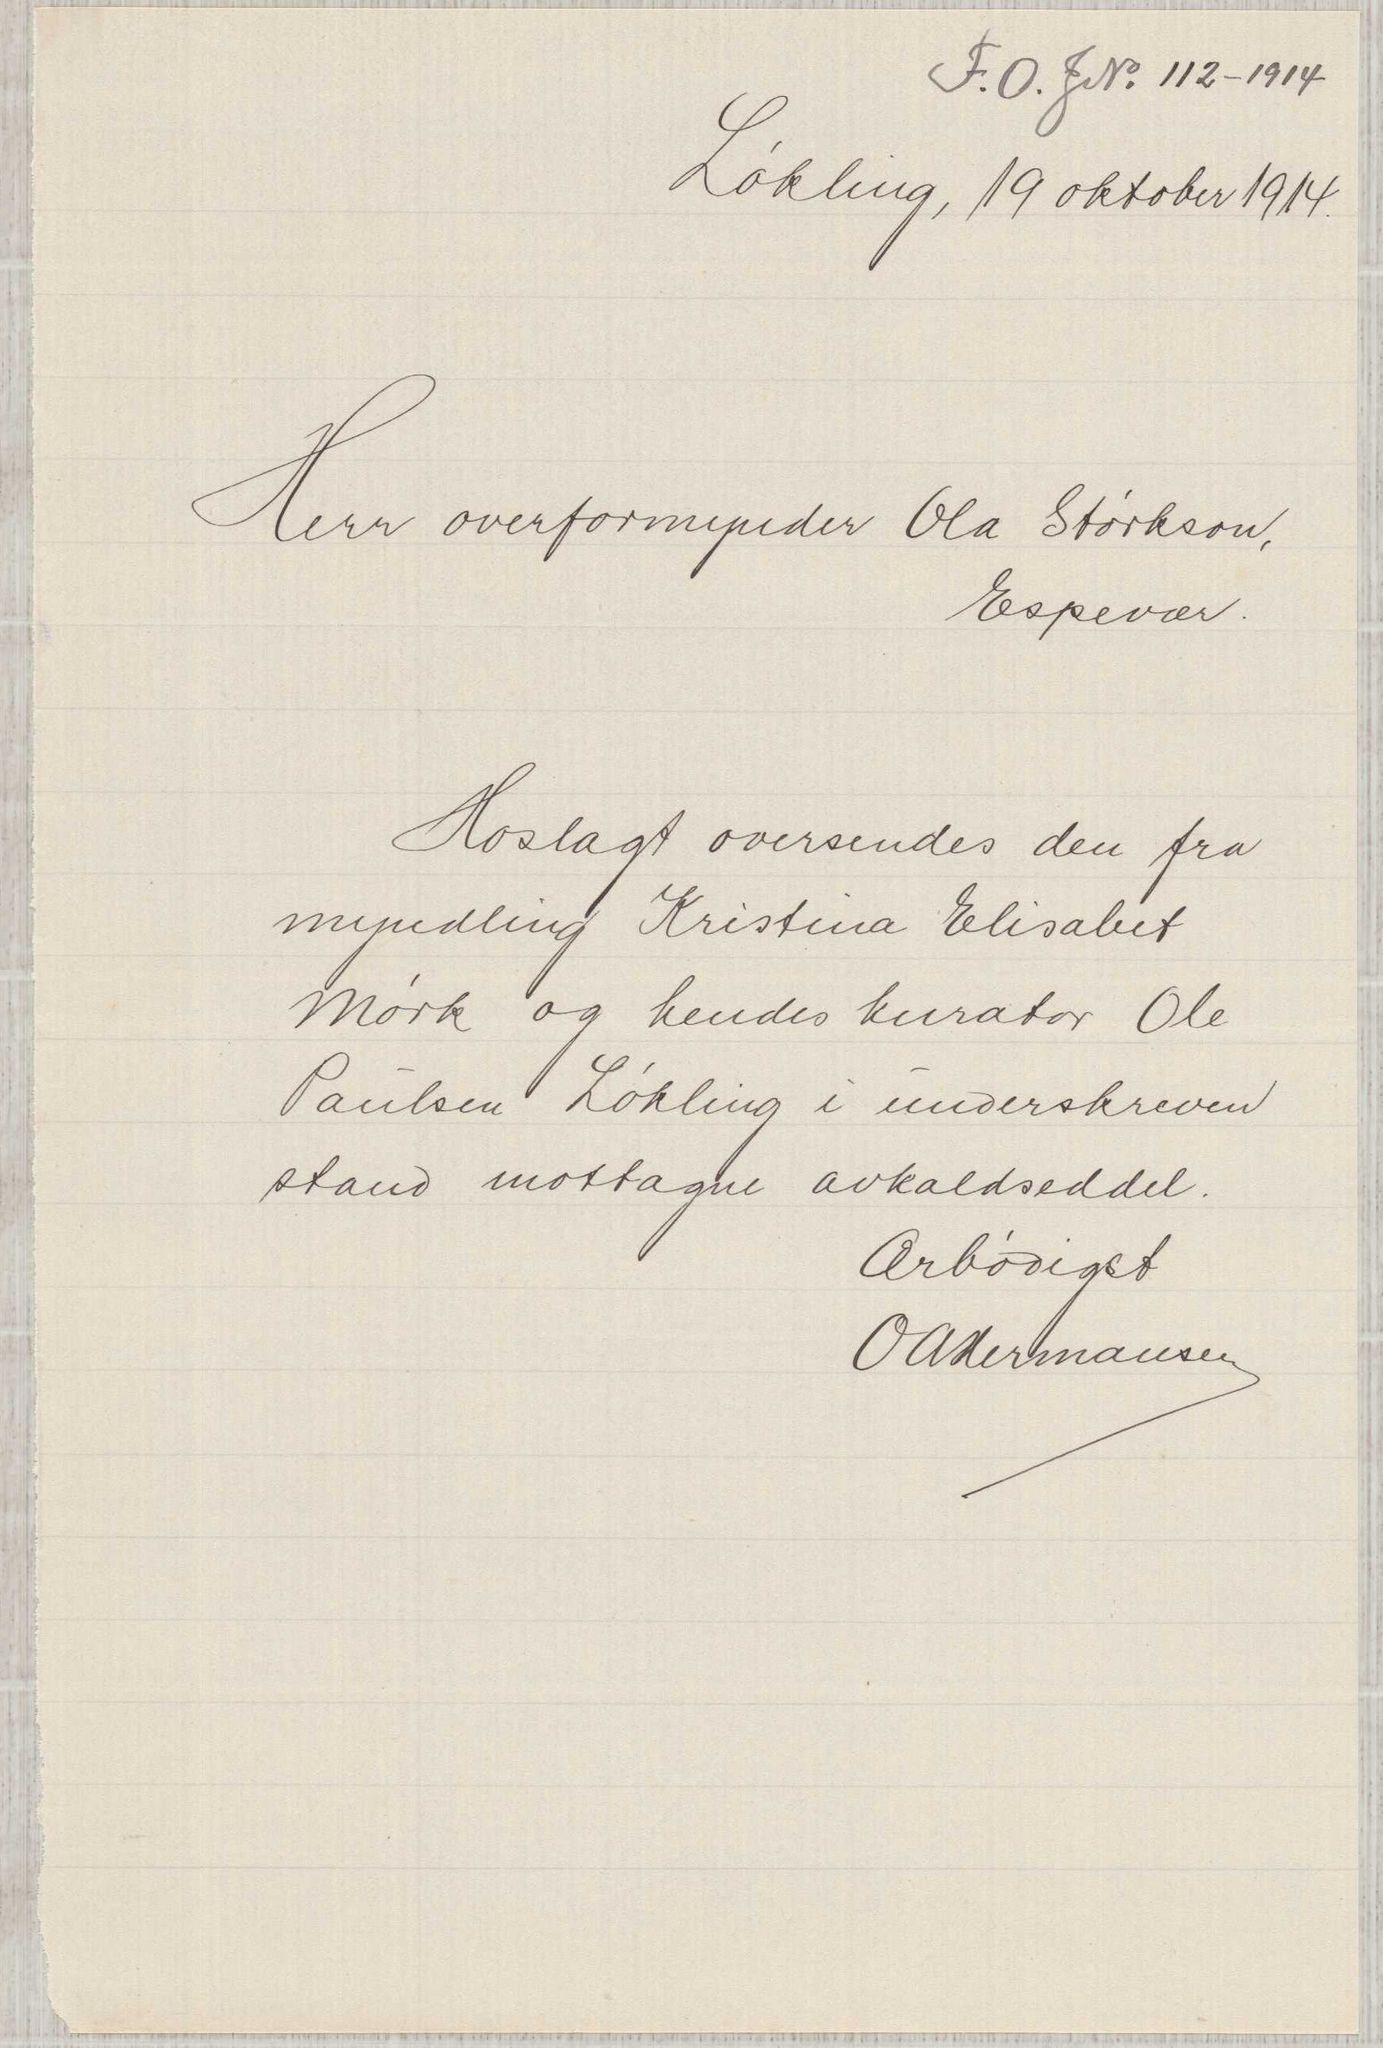 F. O. J.No. 112-1914
Løkling, 19 oktober 1914.
Herr overformynder Ola Størkson,
Espevær.
Hoslagt oversendes den fra
myndling Kristina Elisabet
Mørk og hendes kurator Ole
Paulsen Løkling i underskreven
stand mottagne avkaldseddel.
Ærbødigst
OAHermansen